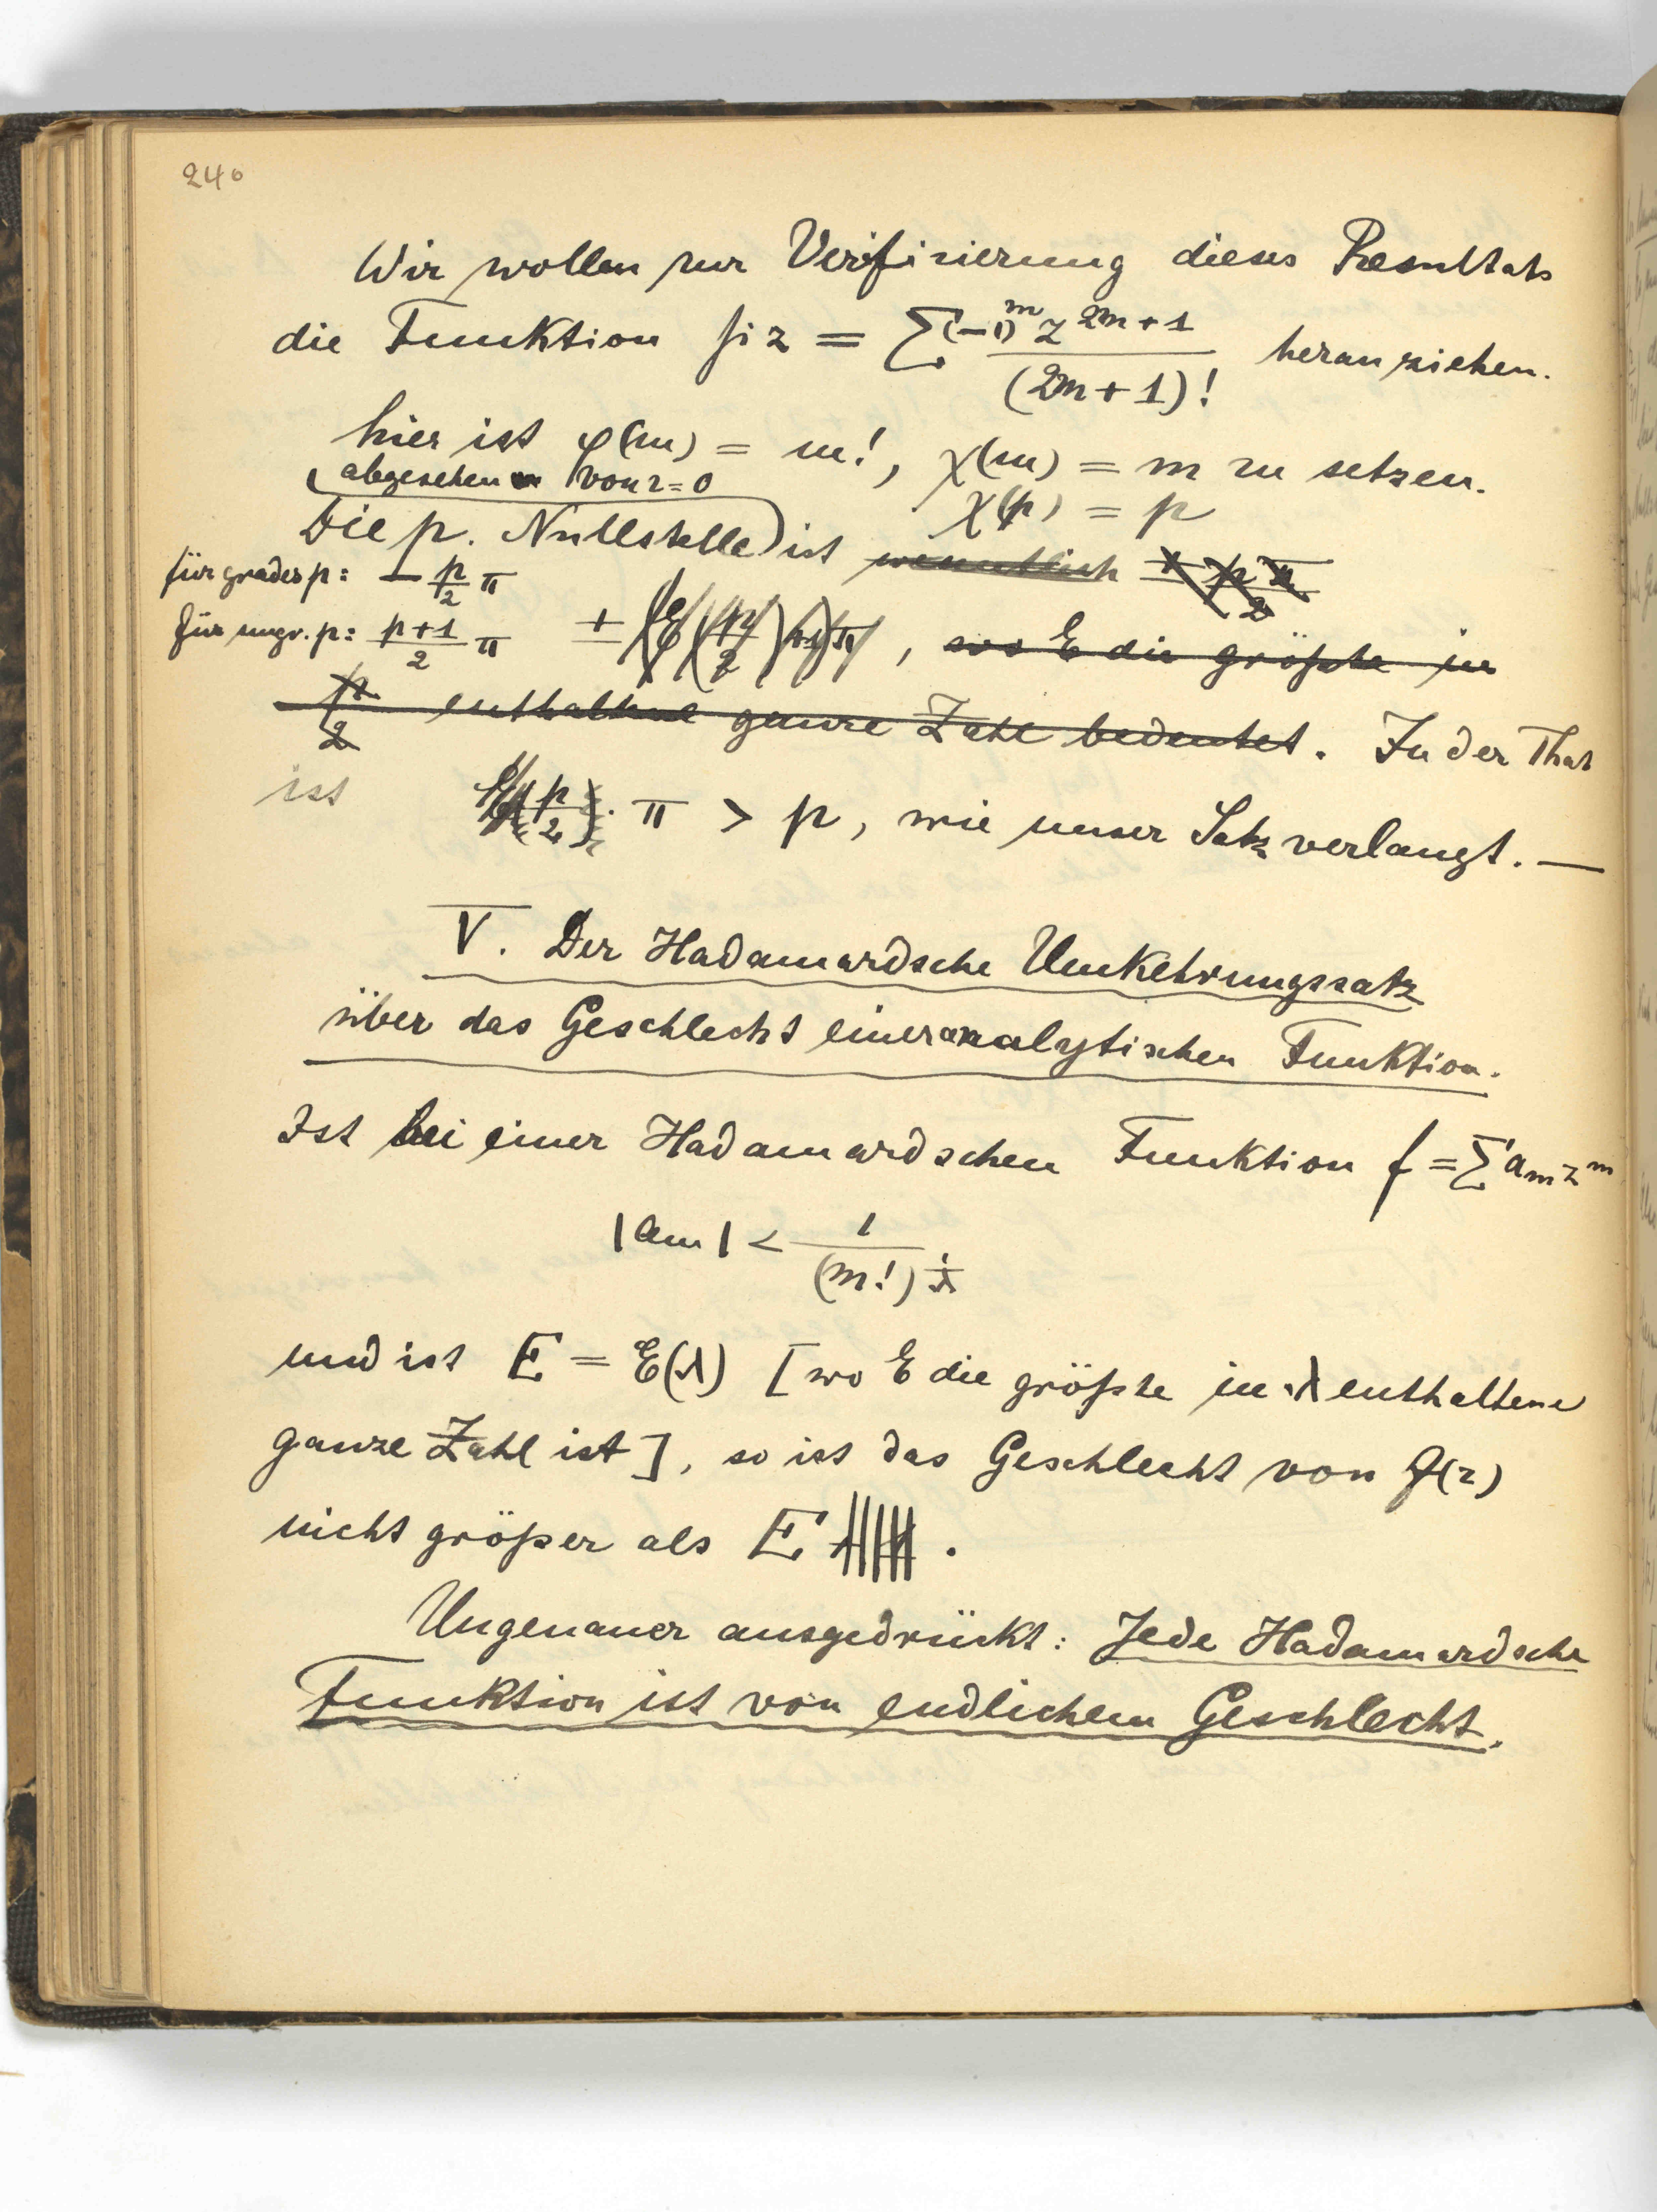 240
Wir wollen zur Verifizierung dieses Resultats
die Funktion si z = ∑ (-1)^m z^{2m+1} / (2m+1)! heranziehen.
hier ist φ(m) = m!, χ(m) = m zu setzen.
(abgesehen von z=0) χ(p) = p
Die p. Nullstelle ist wesentlich ± p π / 2
für grades p: - p/2 π
für ungr. p: (p+1)/2 π ± , wo E die größte in
p/2 enthaltene ganze Zahl bedeutet. In der That
ist (p/2) · π > p, wie unser Satz verlangt. —
V. Der Hadamardsche Umkehrungssatz
über das Geschlecht einer analytischen Funktion.
Ist bei einer Hadamardschen Funktion f = ∑ a_m z^m
|a_m| < 1 / (m!)^{1/λ}
und ist E = E(λ) [wo E die größte in λ enthaltene
ganze Zahl ist], so ist das Geschlecht von f(z)
nicht größer als E .
Ungenauer ausgedrückt: Jede Hadamardsche
Funktion ist von endlichem Geschlecht.